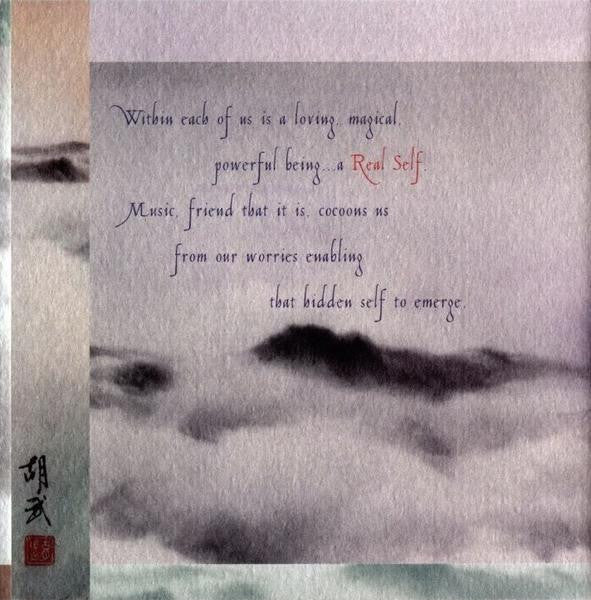 Within each of us is a loving, magical,
powerful being...a Real Self.
Music, friend that it is, cocoons us
from our worries enabling
that hidden self to emerge.
胡
武